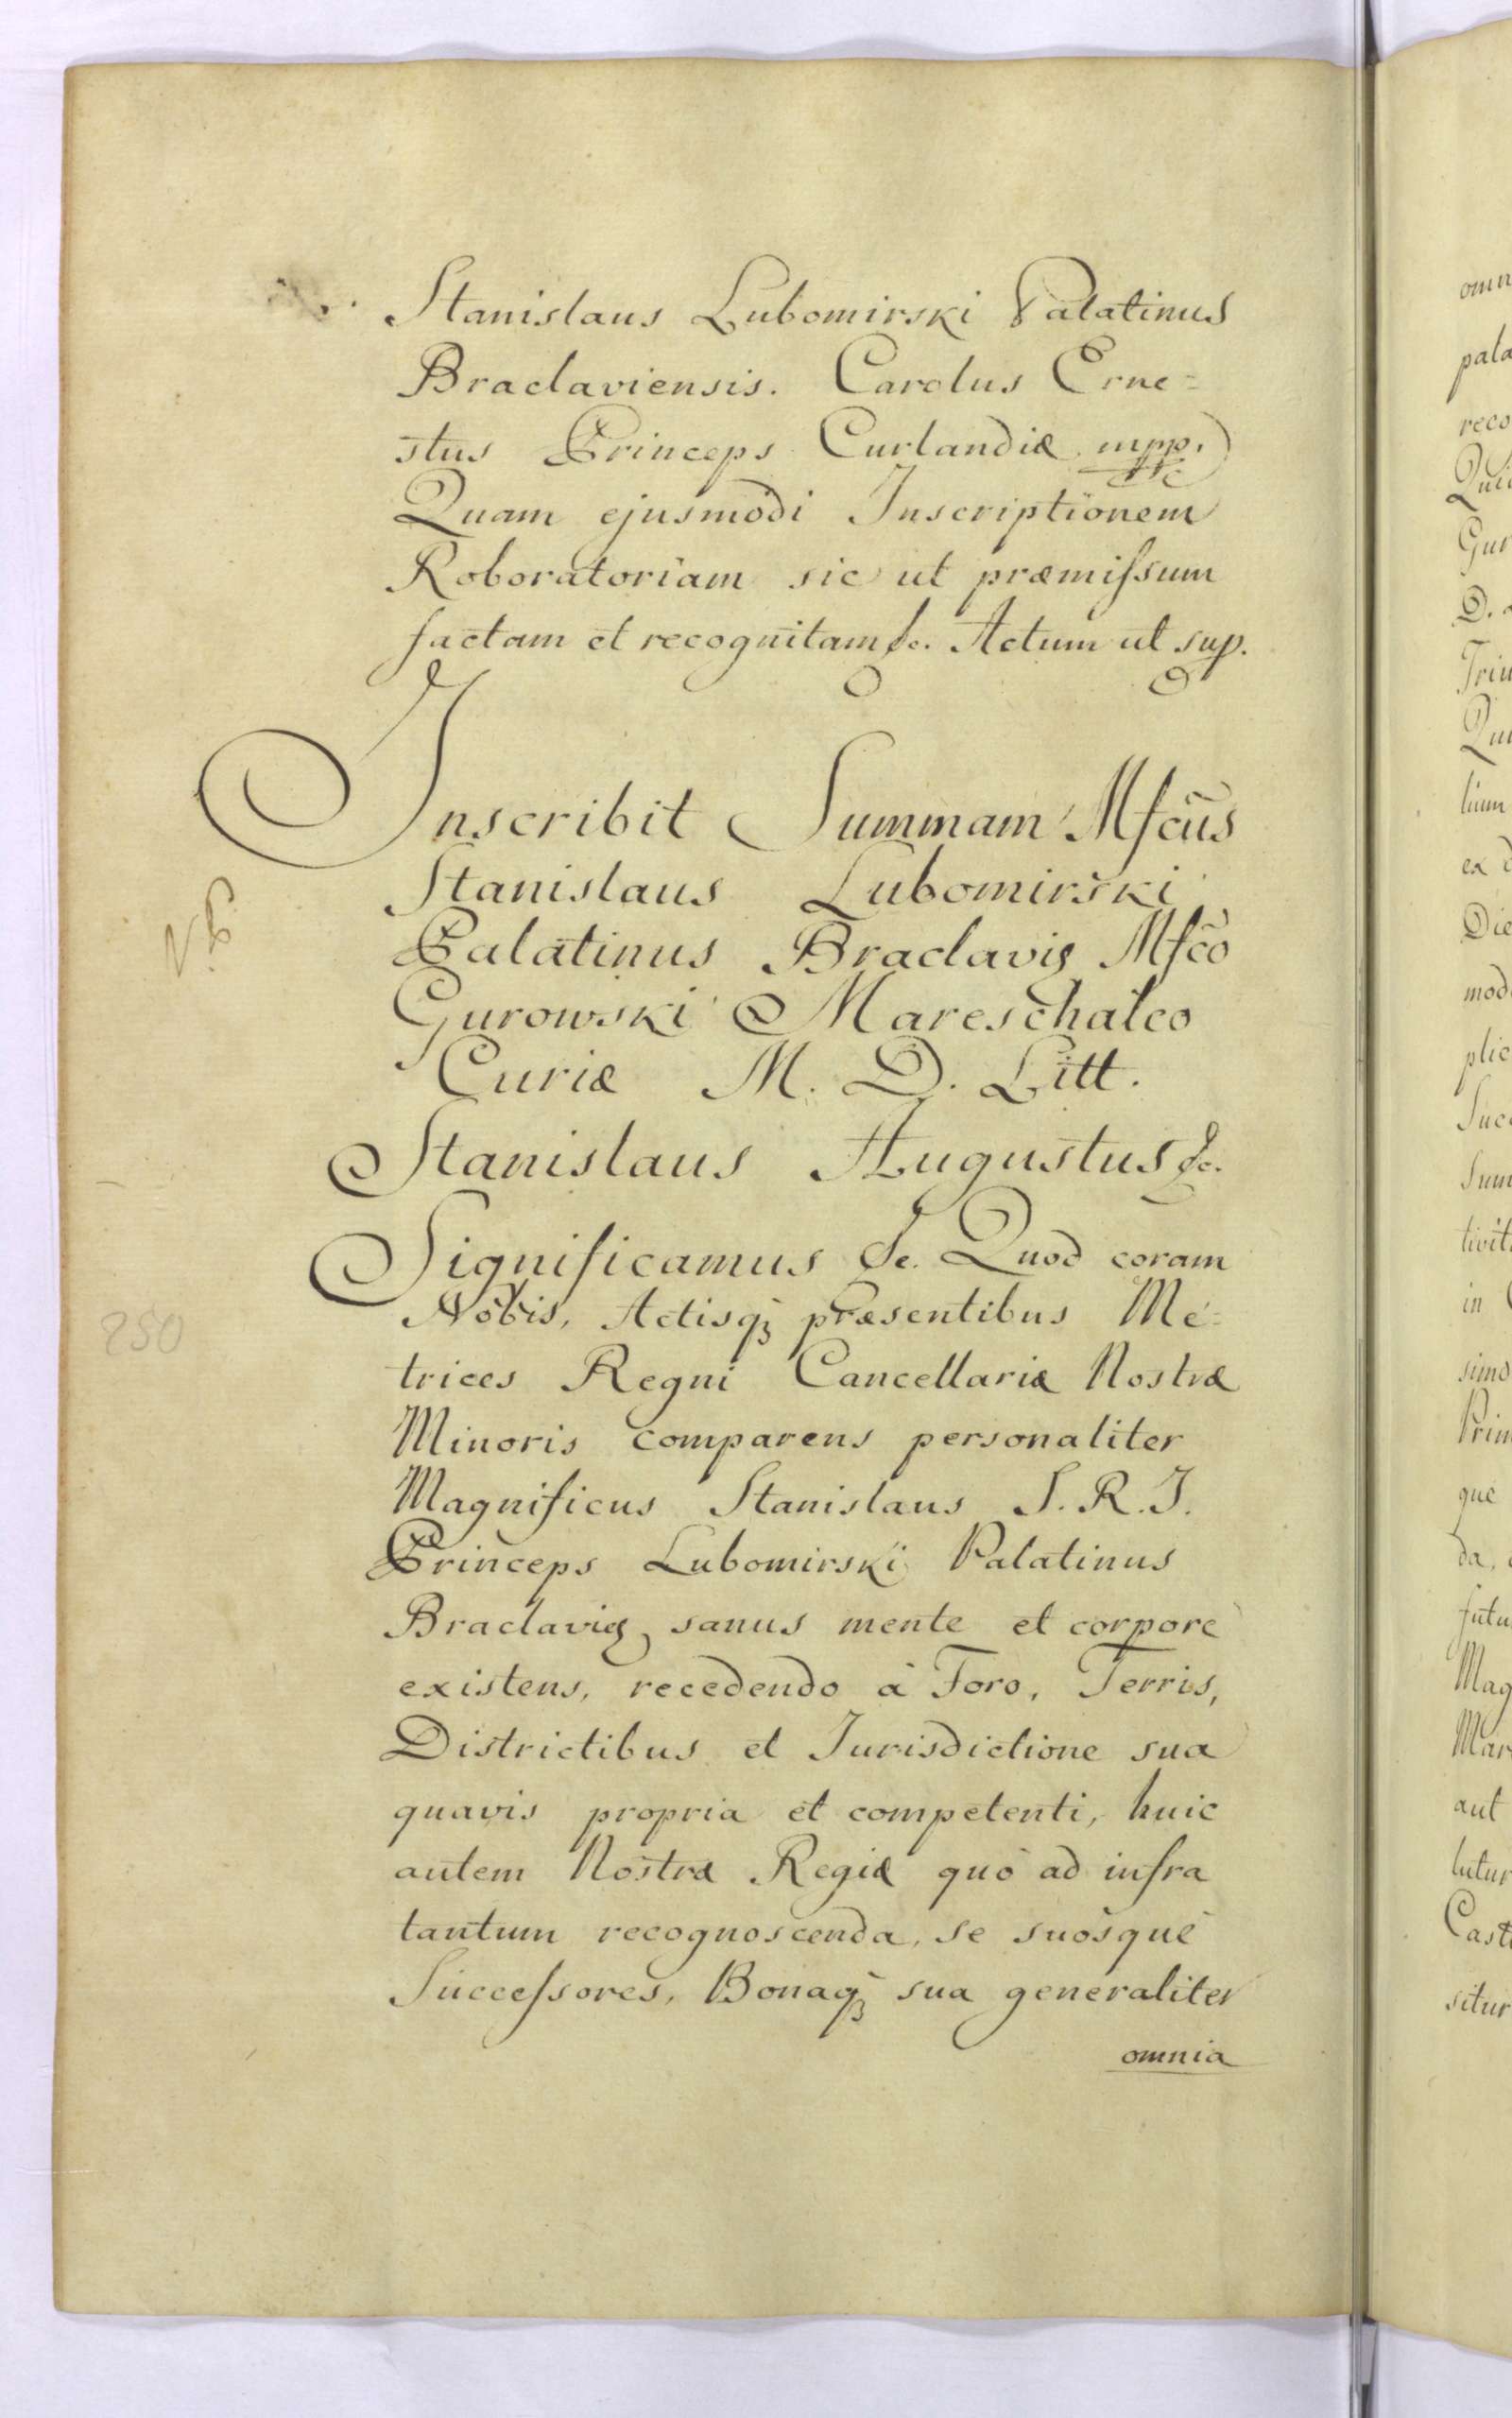 Stanislaus Lubomirski Palatinus
Braclaviensis. Carolus Erne=
stus Princeps Curlandiæ mpp.
Quam ejusmodi Inscriptionem
Roboratoriam sic ut præmiſsum
factam et recognitam &c. Actum ut sup.
Inscribit Summam Mfcũs
Stanislaus Lubomirski
N.B.
Palatinus Braclavię Mfc̃o
Gurowski Mareschalco
Curiæ M. D. Litt.
Stanislaus Augustus &c.
Significamus &c. Quod coram
Nobis, Actisqꝫ præsentibus Me=
250
trices Regni Cancellariæ Nostræ
Minoris comparens personaliter
Magnificus Stanislaus S. R. I.
Princeps Lubomirski Palatinus
Braclavię, sanus mente et corpore
existens, recedendo à Foro, Terris,
Districtibus et Jurisdictione sua
quavis propria et competenti, huic
autem Nostræ Regiæ quò ad infra
tantum recognoscenda, se suosque
Succeſsores, Bonaqꝫ sua generaliter
omnia